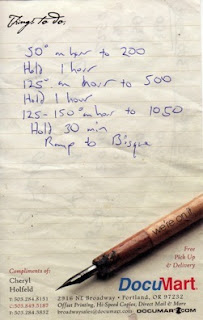 Things to do:
50° an hour to 200
Hold 1 hour
125° an hour to 500
Hold 1 hour
125-150° an hour to 1050
Hold 30 min
Ramp to Bisque
we're on it
Free
Pick Up
& Delivery
Compliments of:
Cheryl
Holfeld
DocuMart
P: 503.284.5151
C: 503.849.5187
F: 503.284.3832
2916 NE Broadway • Portland, OR 97232
Offset Printing, Hi-Speed Copies, Direct Mail & More
broadwaysales@documart.com
DOCUMART.COM